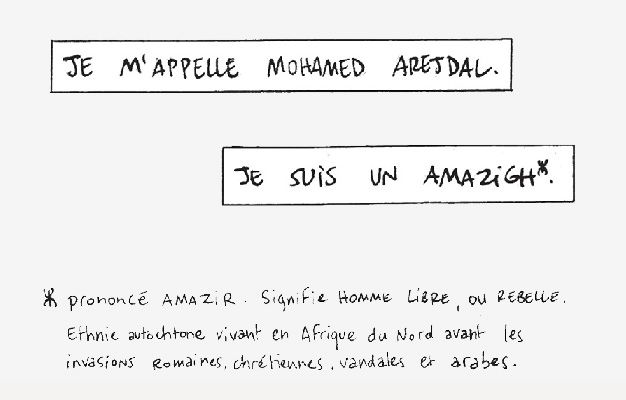 JE M'APPELLE MOHAMED AREJDAL.
JE SUIS UN AMAZIGH*.
* prononcé AMAZIR. Signifie HOMME LIBRE, ou REBELLE.
Ethnie autochtone vivant en Afrique du Nord avant les
invasions Romaines, chrétiennes, vandales et arabes.